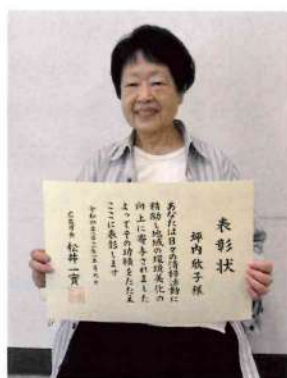 表彰状
坪内欣子様
あなたは日々の清掃活動に
精励し地域の環境美化の
向上に寄与されました
よってその功績をたたえ
ここに表彰します
松井一實